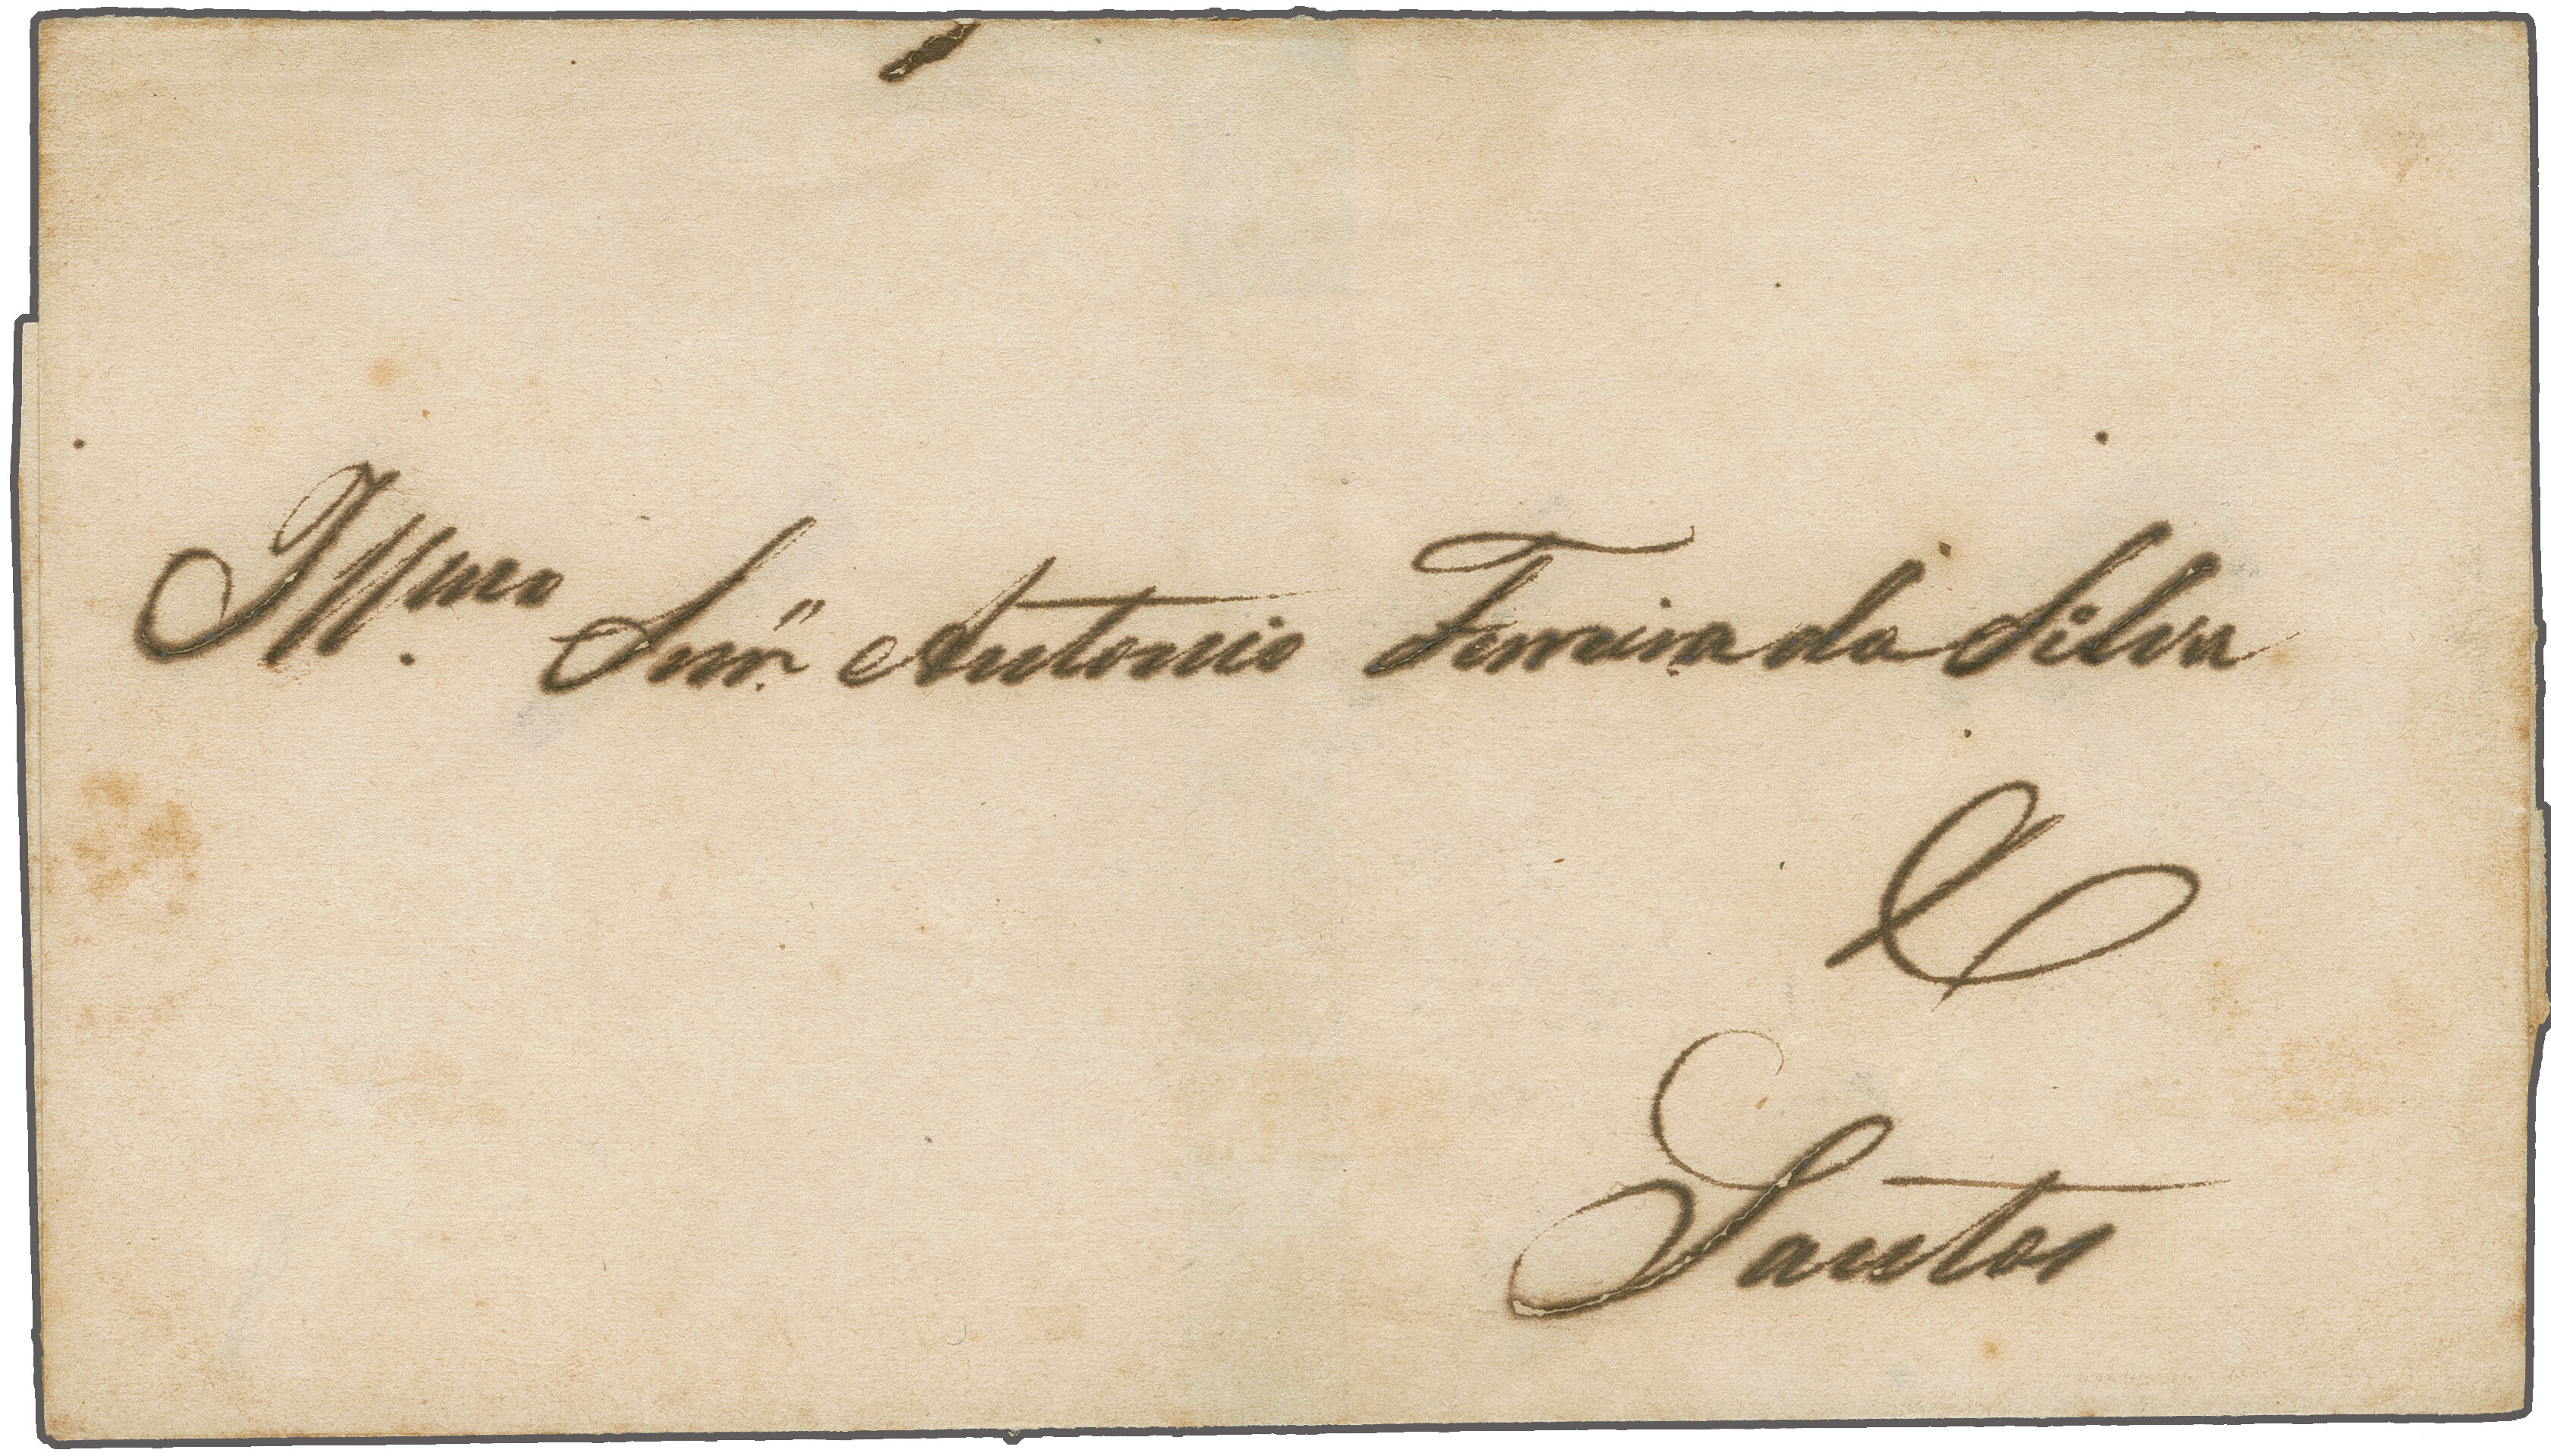 Illmo. Snr. Antonio Ferreira da Silva
Santos